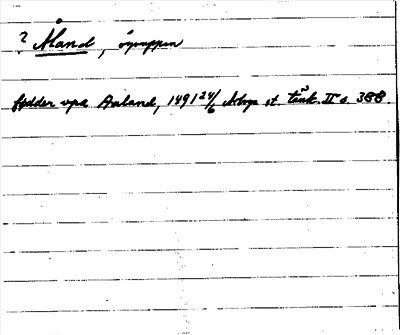 ? Åland, ögruppen
fødder vpa Aaland, 1491 24/6 Åbyo st. tänk. II s. 388.